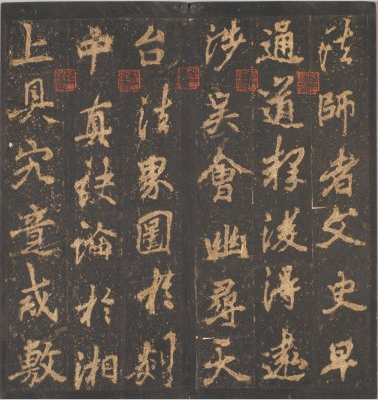 法師者文史早
通道釋後得遠
涉吳會幽尋天
台法界圖於剡
中真訣論於湘
上具究竟戒敷